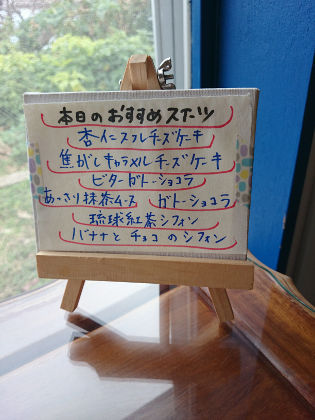 本日のおすすめスイーツ
杏仁スフレチーズケーキ
焦がしキャラメルチーズケーキ
ビターガトーショコラ
あっさり抹茶ムース ガトーショコラ
琉球紅茶シフォン
バナナとチョコのシフォン